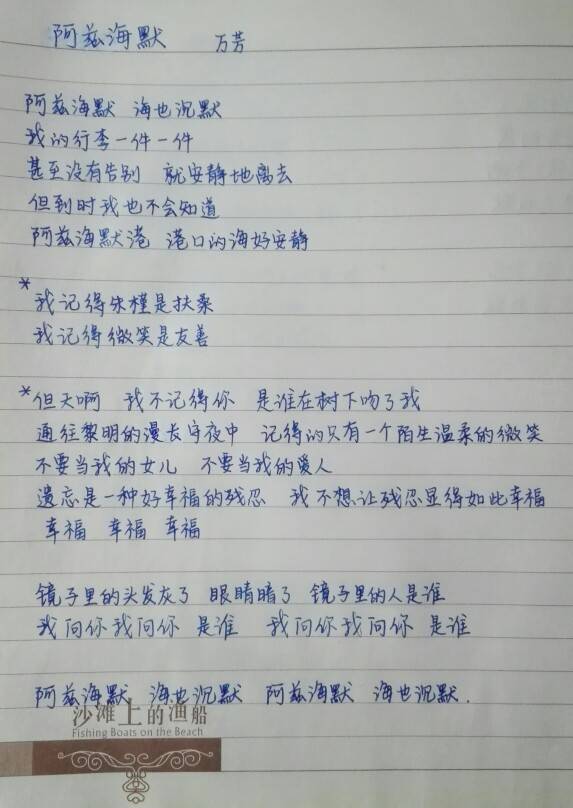 阿兹海默 万芳
阿兹海默 海也沉默
我的行李一件一件
甚至没有告别 就安静地离去
但到时我也不会知道
阿兹海默港 港口的海好安静
*我记得朱槿是扶桑
我记得微笑是友善
*但天啊 我不记得你 是谁在树下吻了我
通往黎明的漫长守夜中 记得的只有一个陌生温柔的微笑
不要当我的女儿 不要当我的爱人
遗忘是一种好幸福的残忍 我不想让残忍显得如此幸福
幸福 幸福 幸福
镜子里的头发灰了 眼睛暗了 镜子里的人是谁
我问你我问你 是谁 我问你我问你 是谁
阿兹海默 海也沉默 阿兹海默 海也沉默.
沙滩上的渔船
Fishing Boats on the Beach